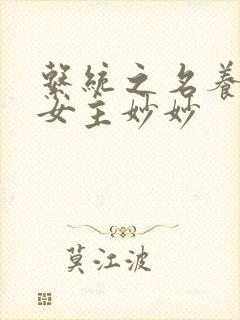 繫統之名養
女主妙妙
莫江波